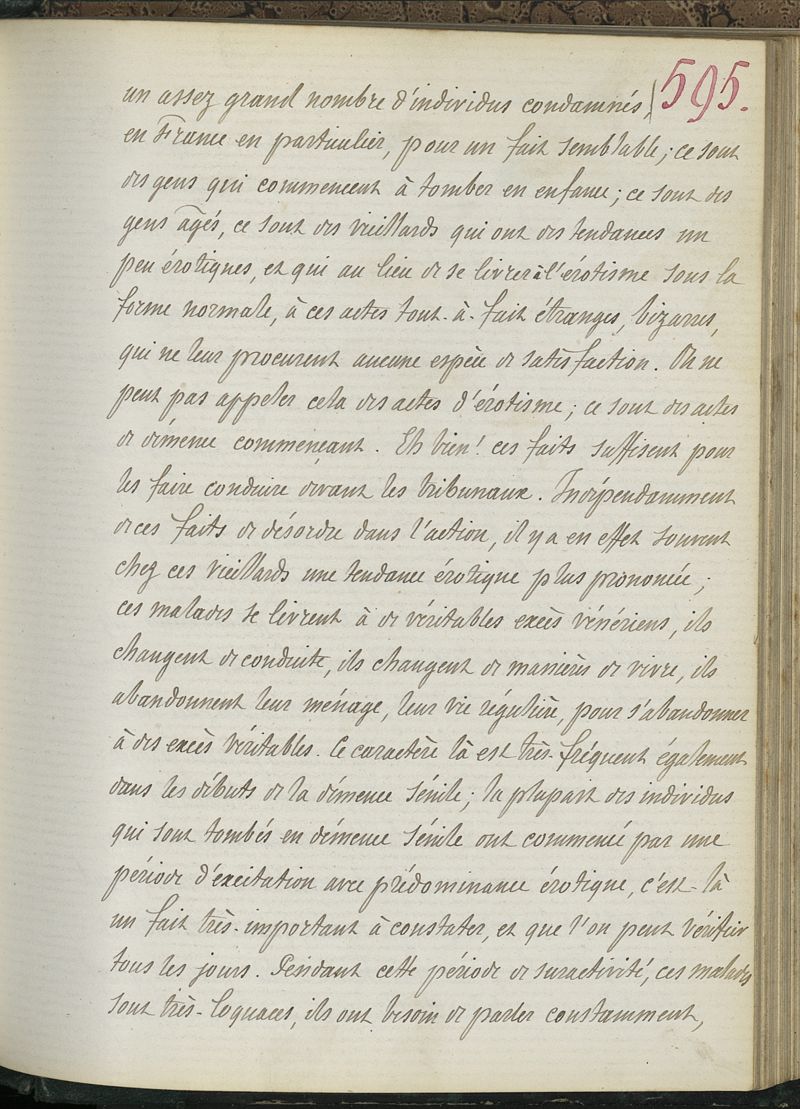 595.
un assez grand nombre d'individus condamnés,
en France en particulier, pour un fait semblable; ce sont
des gens qui commencent à tomber en enfance; ce sont des
gens âgés, ce sont des vieillards qui ont des tendances un
peu érotiques, et qui au lieu de se livrer à l'érotisme sous la
forme normale, à ces actes tout-à-fait étranges, bizarres,
qui ne leur procurent aucune espèce de satisfaction. On ne
peut pas appeler cela des actes d'érotisme; ce sont des actes
de démence commençant. Eh bien! ces faits suffisent pour
les faire conduire devant les tribunaux. Indépendamment
de ces faits de désordre dans l'action, il y a en effet souvent
chez ces vieillards une tendance érotique plus prononcée;
ces malades se livrent à de véritables excès vénériens, ils
changent de conduite, ils changent de manières de vivre, ils
abandonnent leur ménage, leur vie régulière, pour s'abandonner
à des excès véritables. Ce caractère là est très-fréquent également
dans les débuts de la démence sénile; la plupart des individus
qui sont tombés en démence sénile ont commencé par une
période d'excitation avec prédominance érotique, c'est-là
un fait très-important à constater, et que l'on peut vérifier
tous les jours. Pendant cette période de suractivité, ces malades
sont très-loquaces, ils ont besoin de parler constamment,